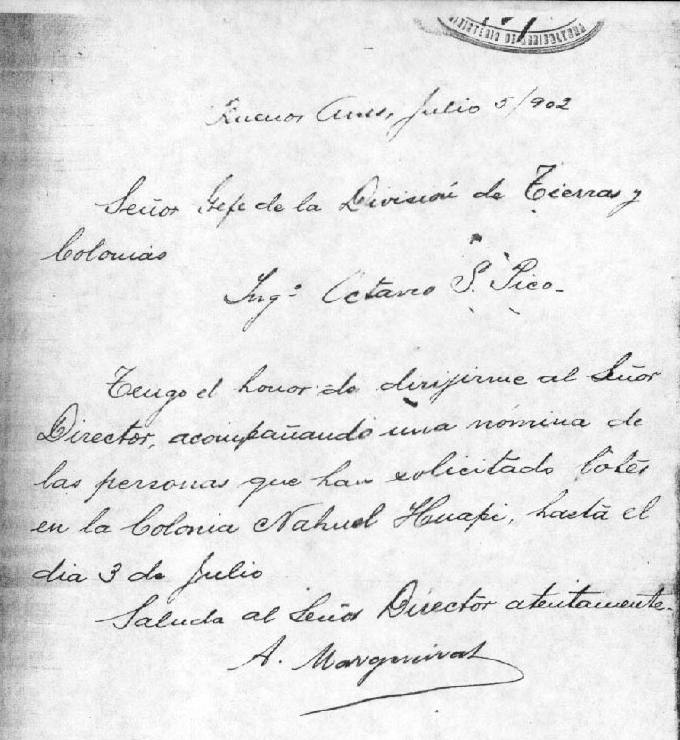 MINISTERIO DE AGRICULTURA
Buenos Aires, Julio 5/902
Señor Gefe de la División de Tierras y
Colonias
Ing.º Octavio S. Pico.
Tengo el honor de dirijirme al Señor
Director, acompañando una nómina de
las personas que han solicitado lotes
en la Colonia Nahuel Huapi, hasta el
dia 3 de Julio
Saluda al Señor Director atentamente.
A.